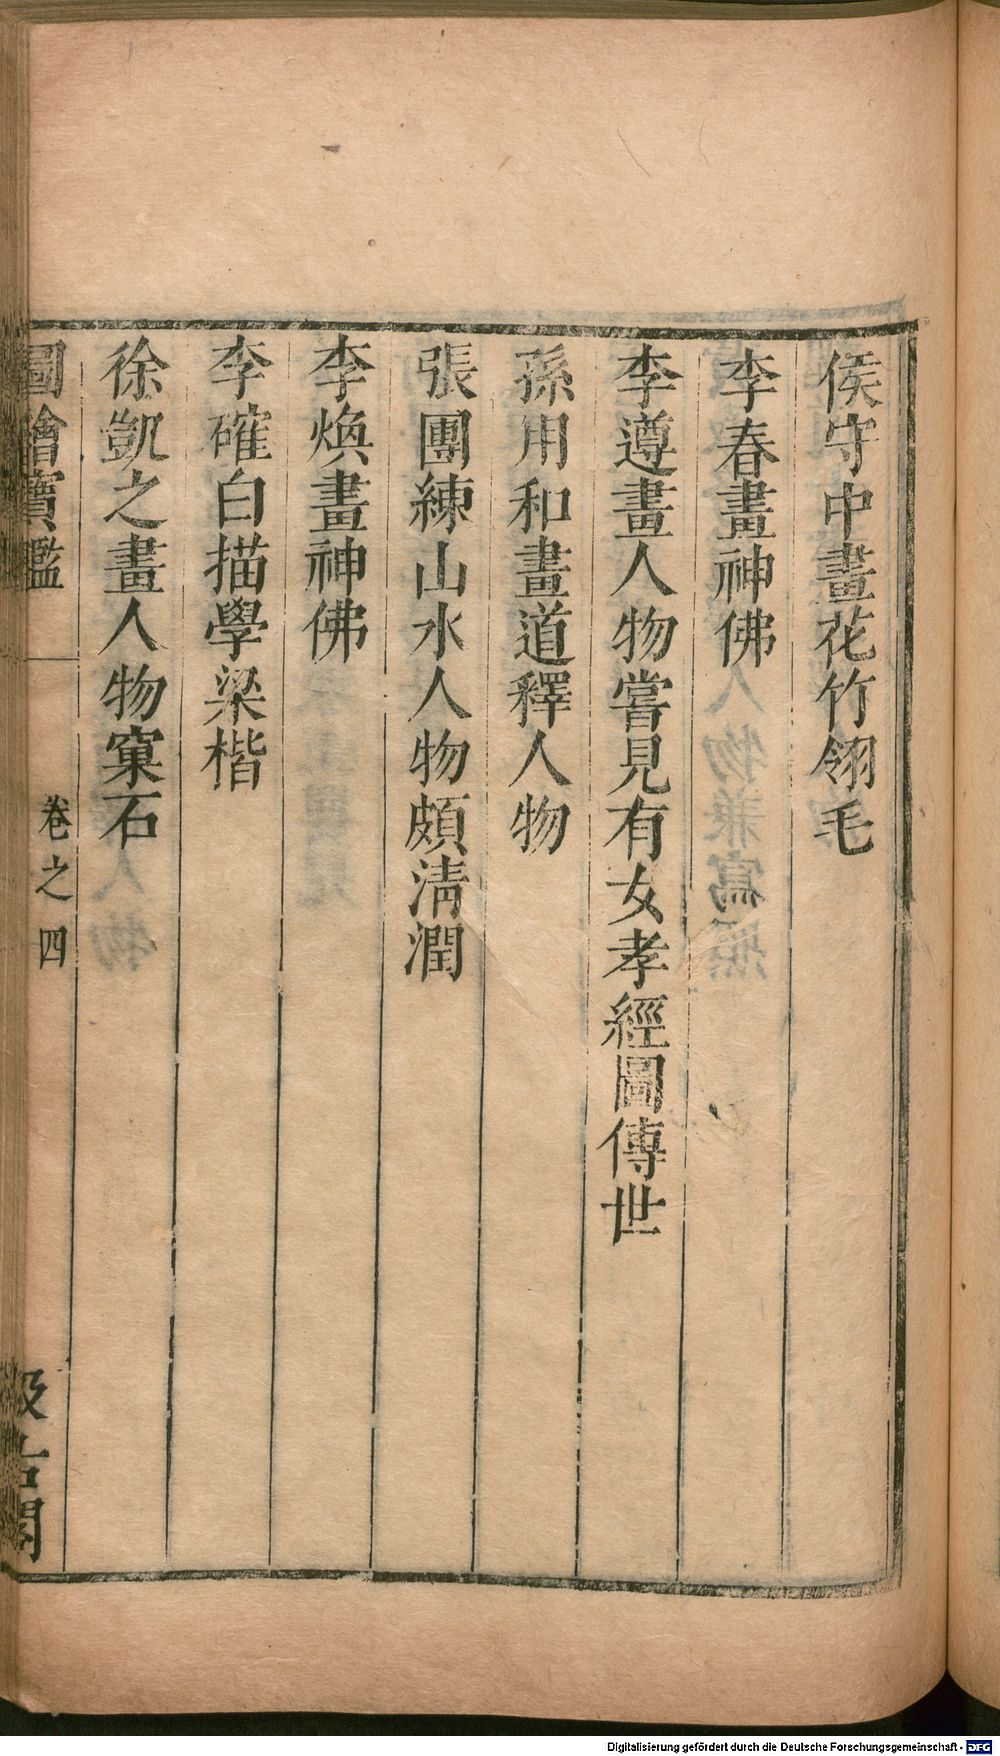 侯守中畫花竹翎毛
李春畫神佛
李遵畫人物嘗見有女孝經圖傳世
孫用和畫道釋人物
張團練山水人物頗清潤
李煥畫神佛
李確白描學梁楷
徐凱之畫人物窠石
圖繪寶鑑
卷之四
汲古閣
Digitalisierung gefördert durch die Deutsche Forschungsgemeinschaft - DFG